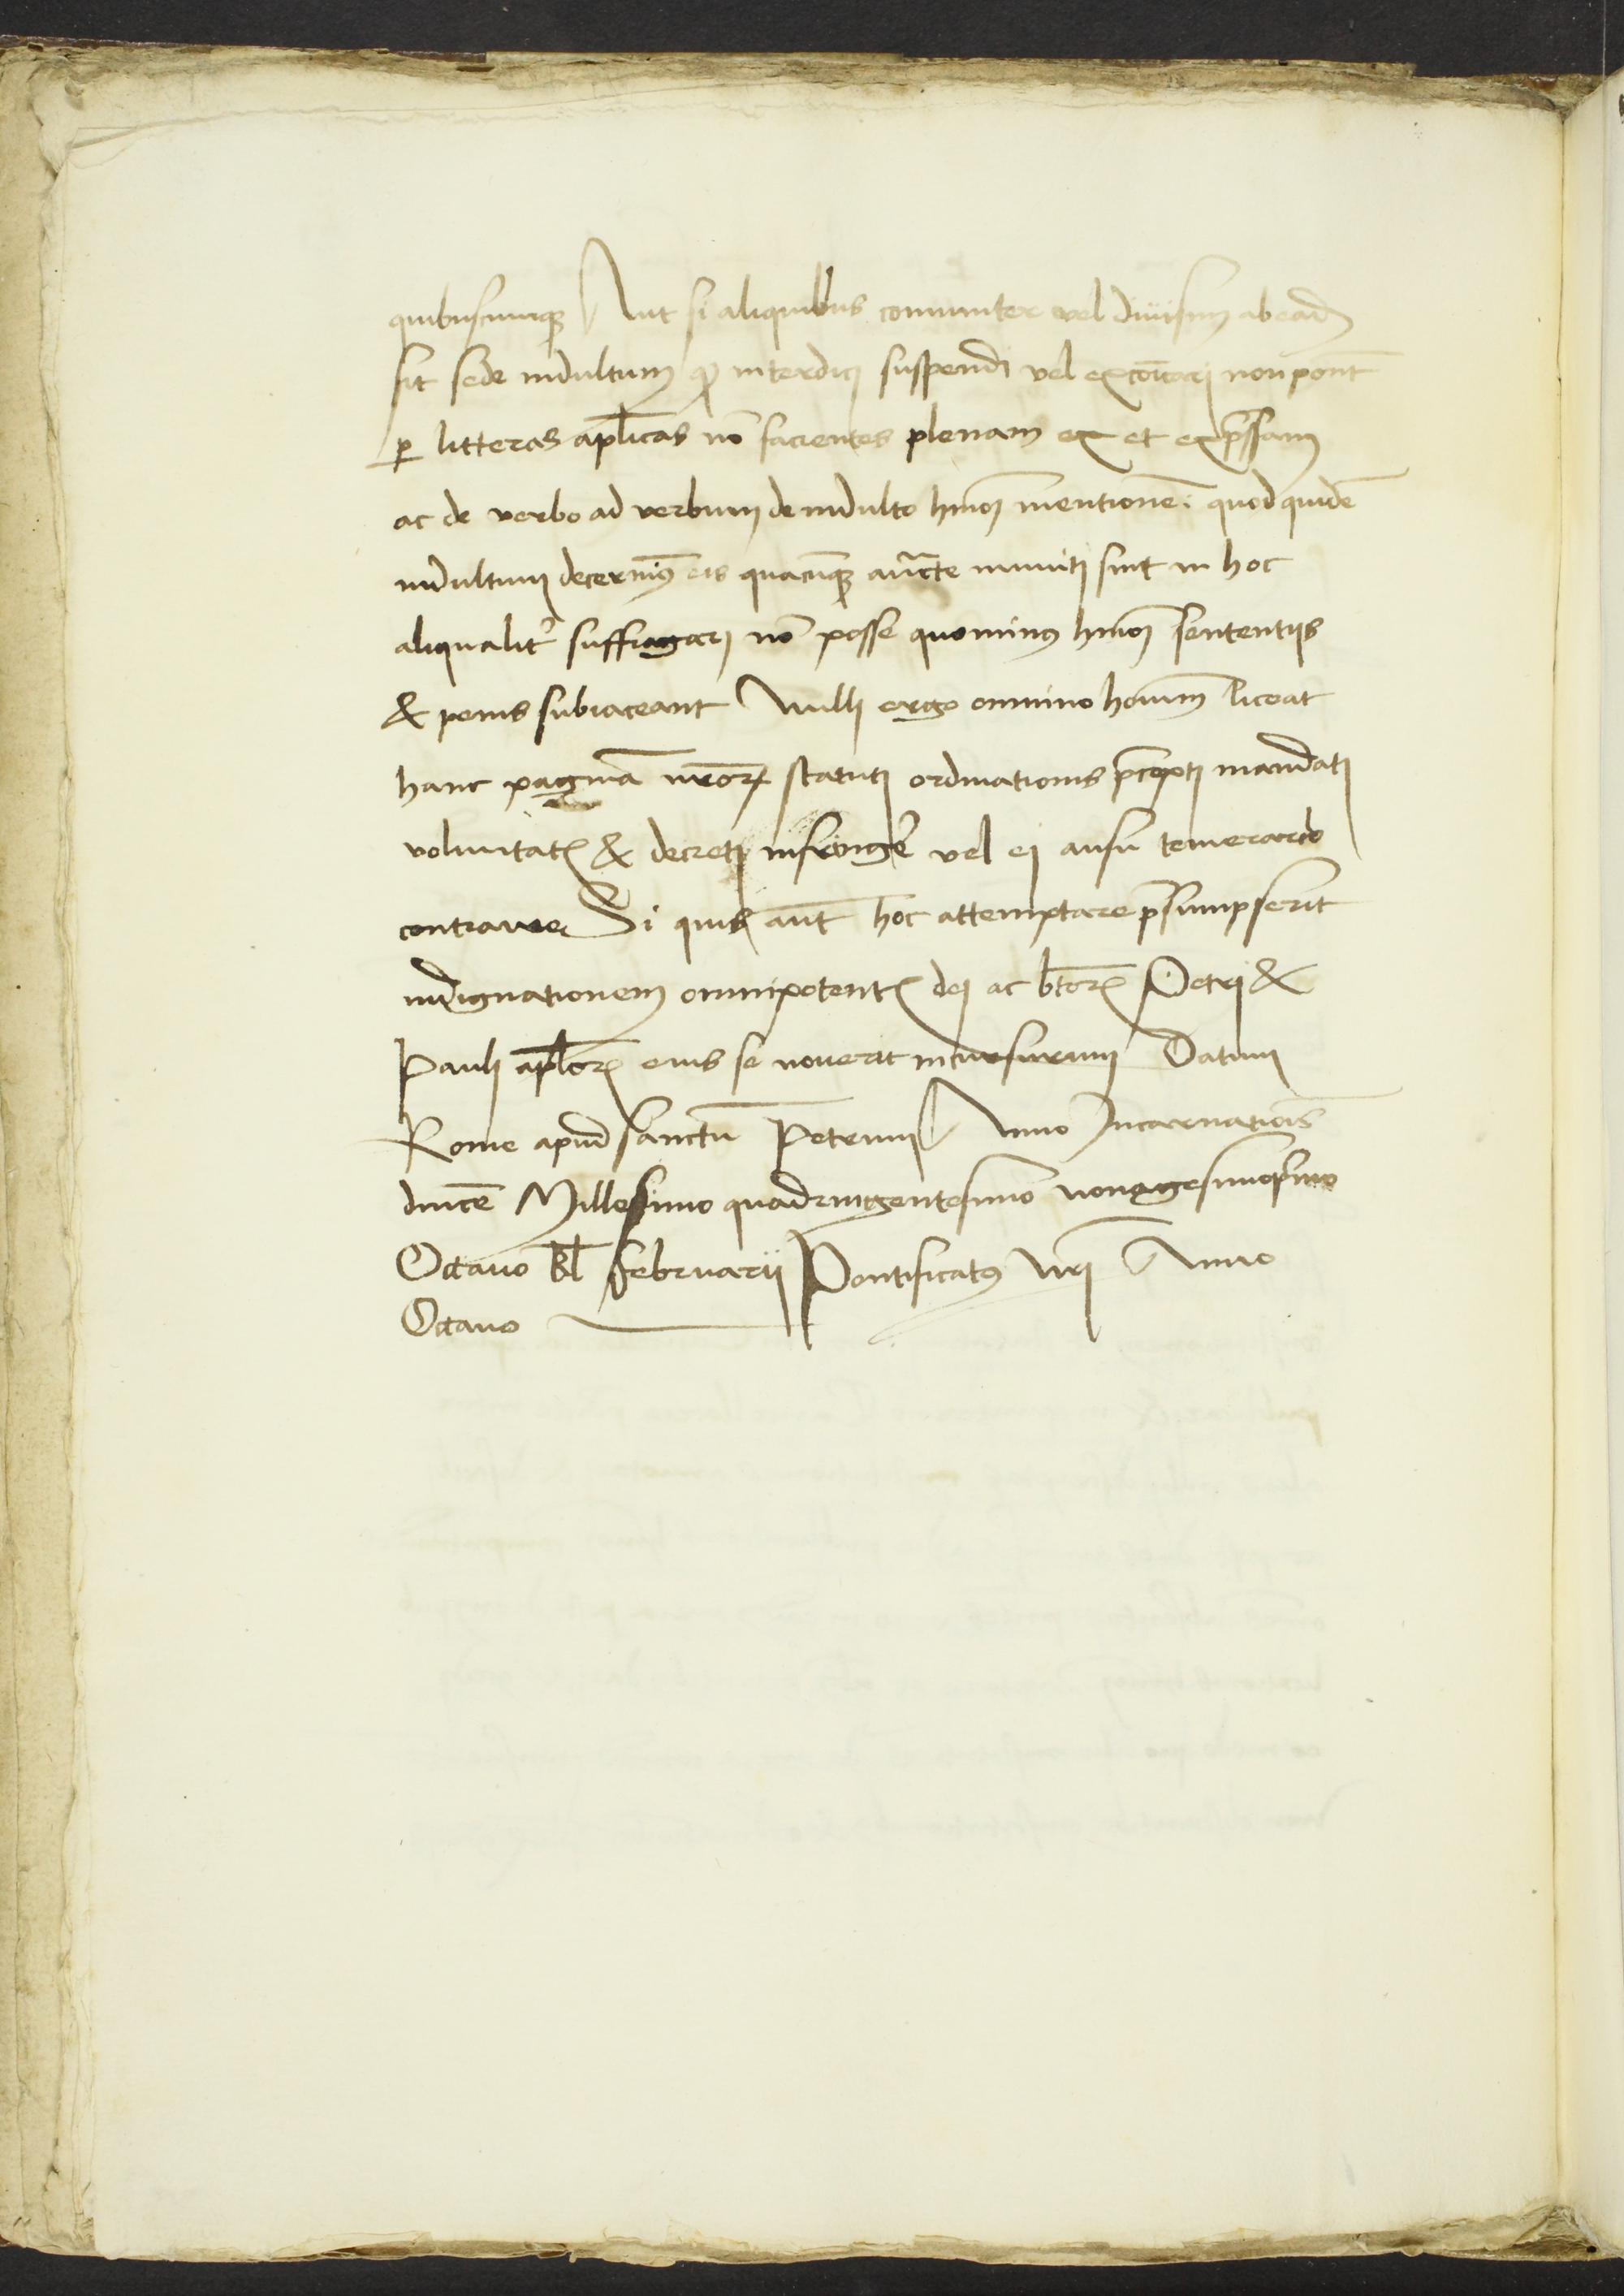 quibuscumq; Aut si aliquibus comuniter vel diuisim ab ead͂
sit sede indultum q͂ interdici suspendi vel excōicari non pont̄
p litteras apl̄icas nō facientes plenam ex et exp̄ssam
ac de verbo ad verbum de indulto hmōi mentionē. quod quidē
indultum decernim͂ eis quacūq; auct̄e muniti sint in hoc
aliqualit͂ suffragari nō posse quominus hmōi sententijs
& penis subiaceant Nulli ergo omnino hoīum liceat
hanc paginā nr̄orꝝ statuti ordinationis p̄cepti mandati
voluntatꝭ & decreti infringe͂ vel ei ausu temerario
contraire Si quis aūt hoc attemptare p̄sumpserit
indignationem omnipotentꝭ dei ac bt̄orꝝ Petri &
Pauli apl̄orꝝ eius se nouerit incursurum Datum
Rome apud sanctū Petrum Anno Incarnatiōis
dn̄ice Millesimo quadringentesimo nonagesimop͂mo
Octauo kl̄ februarij Pontificatus nr̄i Anno
Octauo